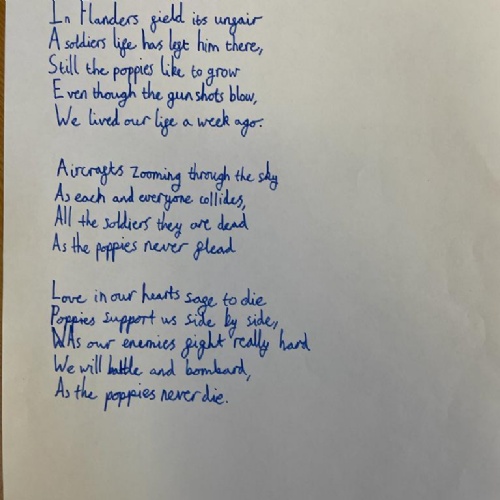 In Flanders field its unfair
A soldiers life has left him there,
Still the poppies like to grow
Even though the gunshots blow,
We lived our life a week ago.
Aircrafts zooming through the sky
As each and everyone collides,
All the soldiers they are dead
As the poppies never flead
Love in our hearts safe to die
Poppies support us side by side,
As our enemies fight really hard
We will battle and bombard,
As the poppies never die.